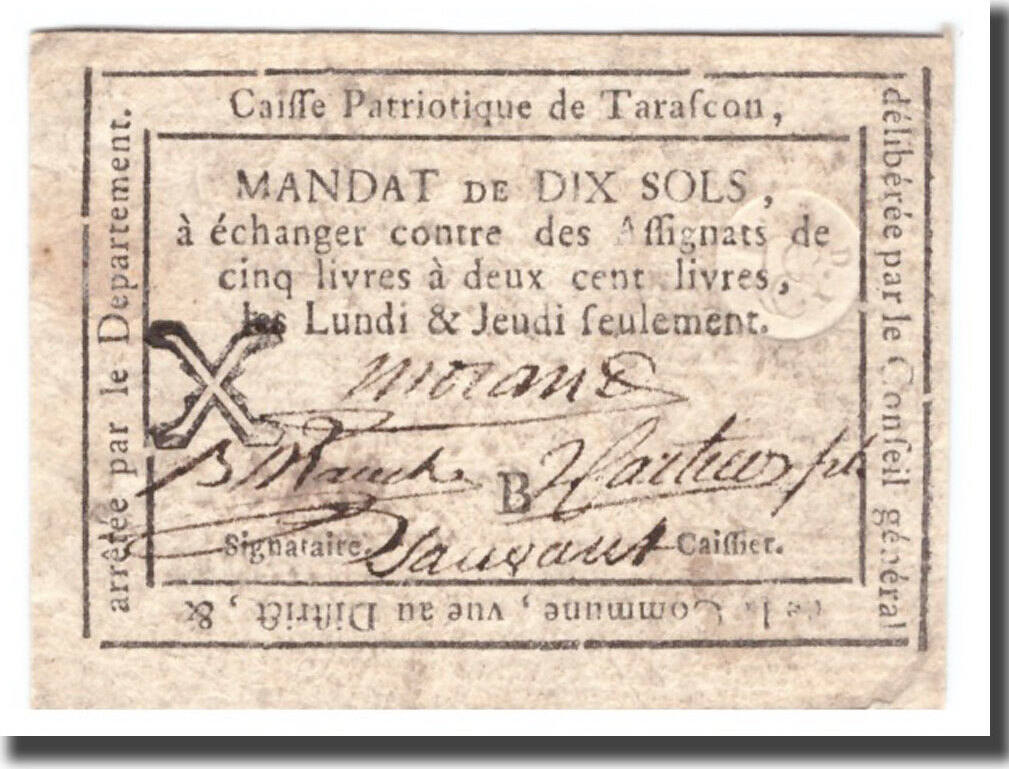 Caiſſe Patriotique de Taraſcon,
délibérée par le Conſeil général
de la Commune, vue au Diſtrict, &
arrêtée par le Département.
MANDAT DE DIX SOLS,
à échanger contre des Aſſignats de
cinq livres à deux cent livres,
les Lundi & Jeudi ſeulement.
X
B
Signataire.
Caiſſier.